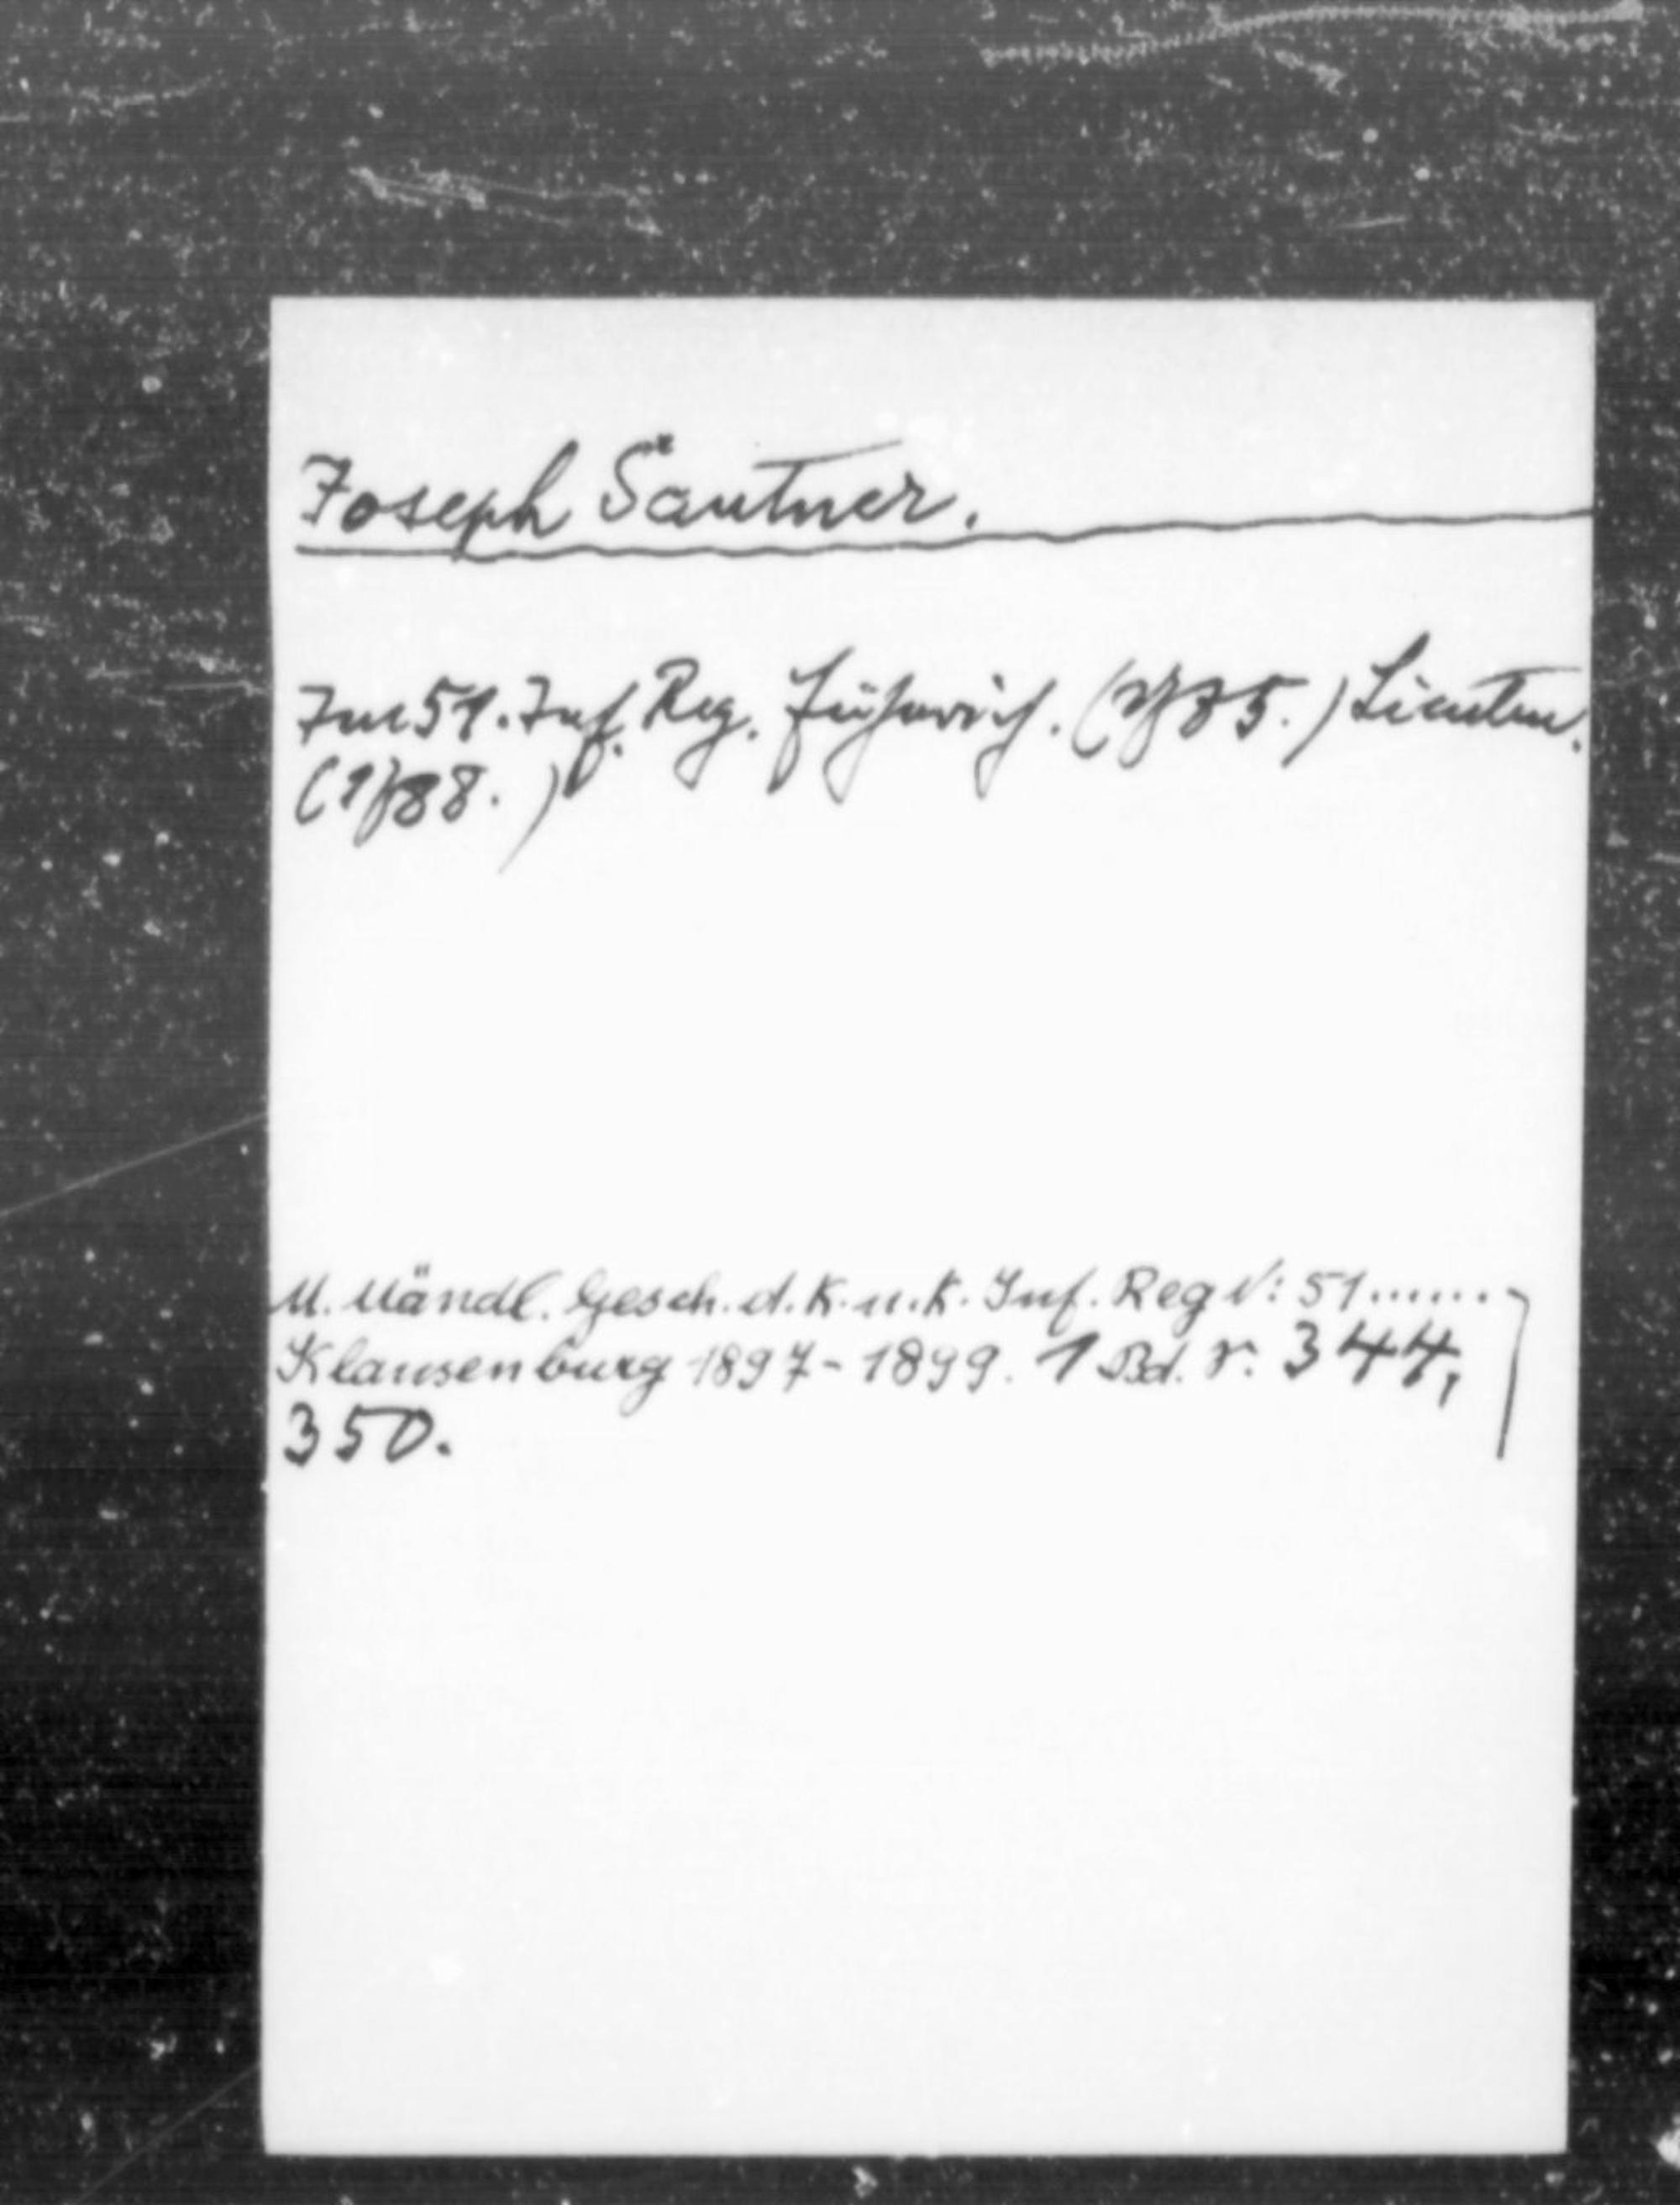 Joseph Säutner.
Im 51. Inf. Reg. Fähnrich. (1785.) Lieuten.
(1788.)
M. Mändl. Gesch. d. K. u. K. Inf. Reg N: 51......
Klausenburg 1897-1899. 1 Bd. r. 344,
350.